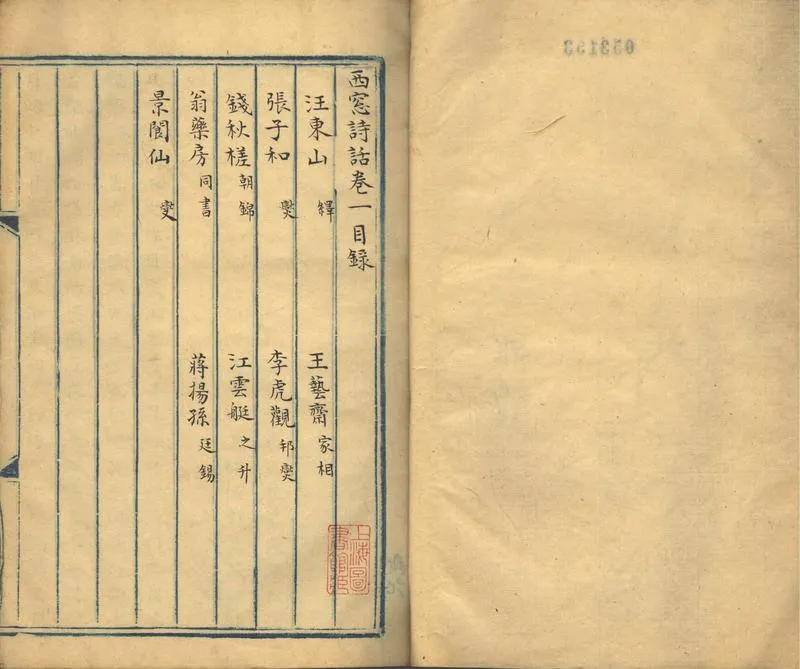 西窓詩話卷一目錄
汪東山 繹 王藝齋 家相
張子和 爕 李虎觀 邦爕
錢秋槎 朝錦 江雲艇 之升
翁藥房 同書 蔣揚孫 廷錫
景閬仙 燮
上海圖書館藏
053153